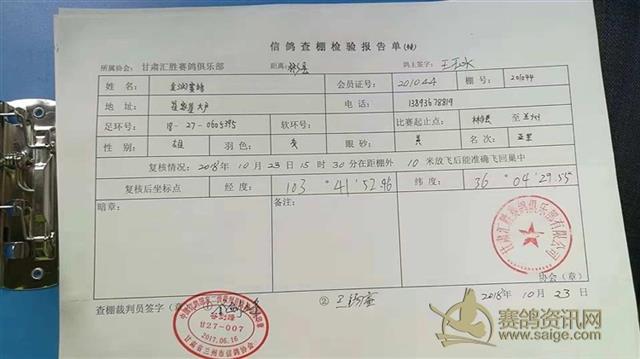 信鸽查棚检验报告单(特)
所属协会: 甘肃汇胜赛鸽俱乐部 距离: 鸽主签字:
姓名 会员证号 201044 棚号 201044
地址 电话 13893678819
足环号 18-27-0605395 软环号 比赛起止点 至兰州
性别 雄 羽色 灰 眼砂 黄 名次
复核情况: 2018年10月23日15时30分在距棚外10米放飞后能准确飞回巢中
复核后坐标点 经度: 103°41′52.96 纬度: 36°04′29.55
暗章: 备注:
甘肃汇胜赛鸽俱乐部有限公司
协会(章)
查棚裁判员签字(章) ① ②
2018年10月23日
027-007
2017.06.16
甘肃省兰州市信鸽协会
赛鸽资讯网
www.saige.com